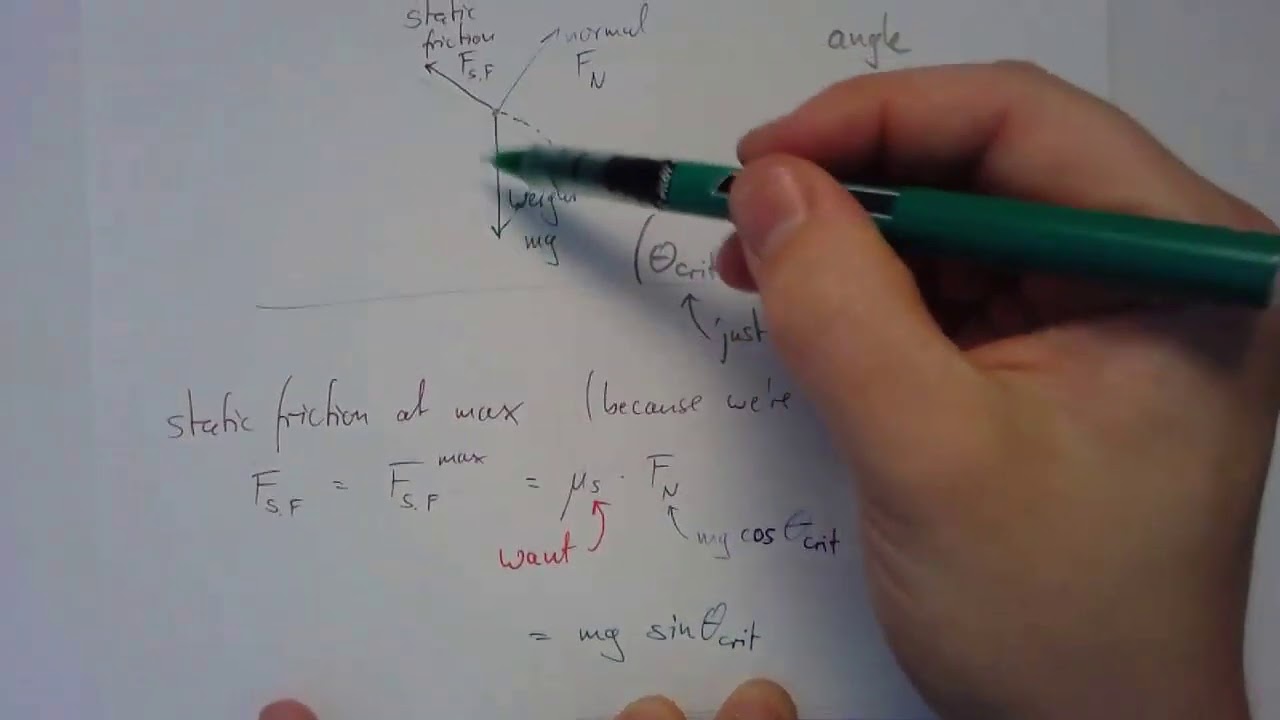 static
friction
F_S.F
normal
F_N
angle
weight
mg
(θ_crit
'just
static friction at max (because we're
F_S.F = F_S.F^max = μ_s · F_N
want
mg cos θ_crit
= mg sin θ_crit